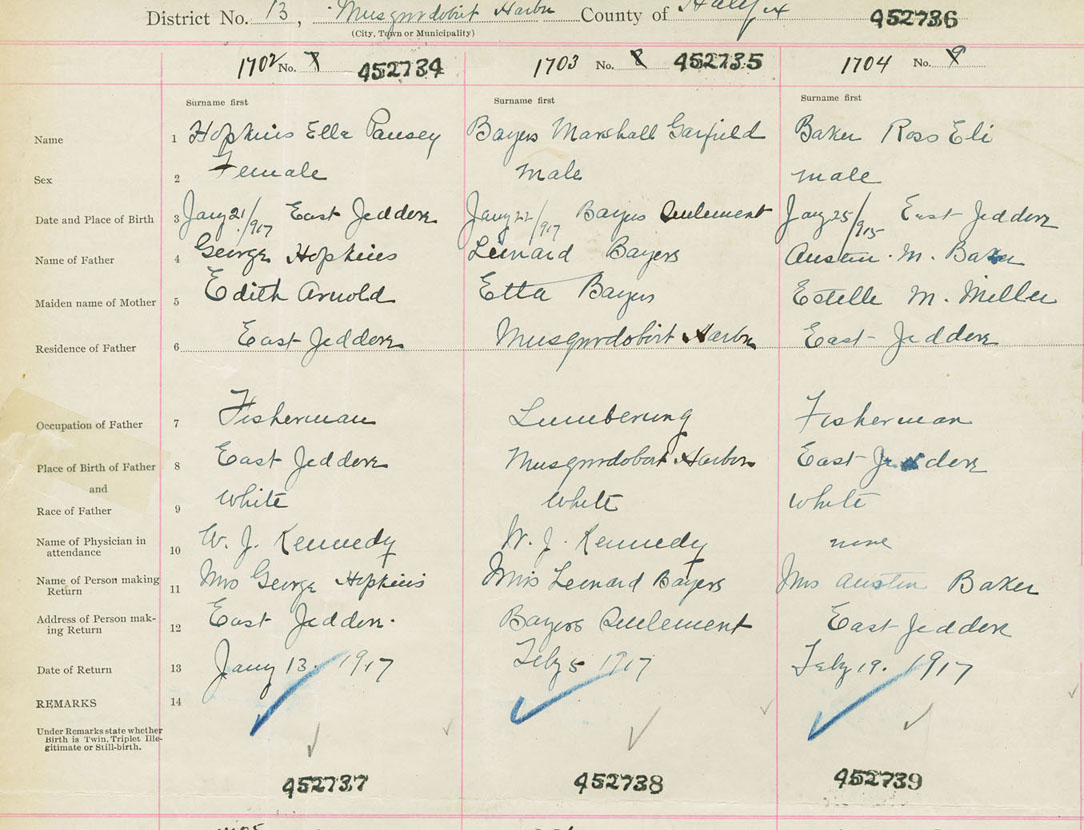 District No. 13, Musquodobit Harbr County of Halifax 452736
(City, Town or Municipality)
1702 No. 7 452734 1703 No. 8 452735 1704 No. 9
Surname first Surname first Surname first
Name 1 Hopkins Ella Pansey Bayers Marshall Garfield Baker Ross Eli
Sex 2 Female male male
Date and Place of Birth 3 Jany 21/917 East Jeddore Jany 22/917 Bayers Settlement Jany 25/915 East Jeddore
Name of Father 4 George Hopkins Leonard Bayers Austin M. Baker
Maiden name of Mother 5 Edith Arnold Etta Bayers Estelle M. Miller
Residence of Father 6 East Jeddore Musquodobit Harbor East Jeddore
Occupation of Father 7 Fisherman Lumbering Fisherman
Place of Birth of Father 8 East Jeddore Musquodobit Harbor East Jeddore
and
Race of Father 9 White White White
Name of Physician in
attendance 10 W. J. Kennedy W. J. Kennedy none
Name of Person making
Return 11 Mrs George Hopkins Mrs Leonard Bayers Mrs Austin Baker
Address of Person mak-
ing Return 12 East Jeddore Bayers Settlement East Jeddore
Date of Return 13 Jany 13. 1917 Feby 5 1917 Feby 19. 1917
REMARKS 14
Under Remarks state whether
Birth is Twin, Triplet Ille-
gitimate or Still-birth.
452737 452738 452739